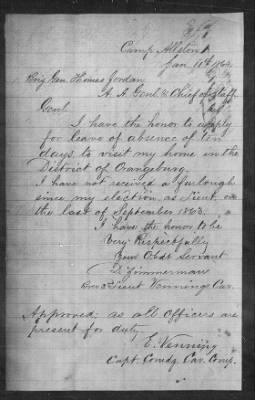 Camp Allston
Jan 11th 1864
Brig Gen Thomas Jordan
A. A. Genl & Chief of Staff
Genl.
I have the honor to apply
for leave of absence of ten
days, to visit my home in the
District of Orangeburg.
I have not received a furlough
since my election as Lieut. on
the last of September 1863.
I have the honor to be
Very Respectfully
Your Obdt Servant
D. Zimmerman
Lieut Vennings Cav.
Approved; as all Officers are
present for duty
E. Venning
Capt. Comdg. Cav. Comp.